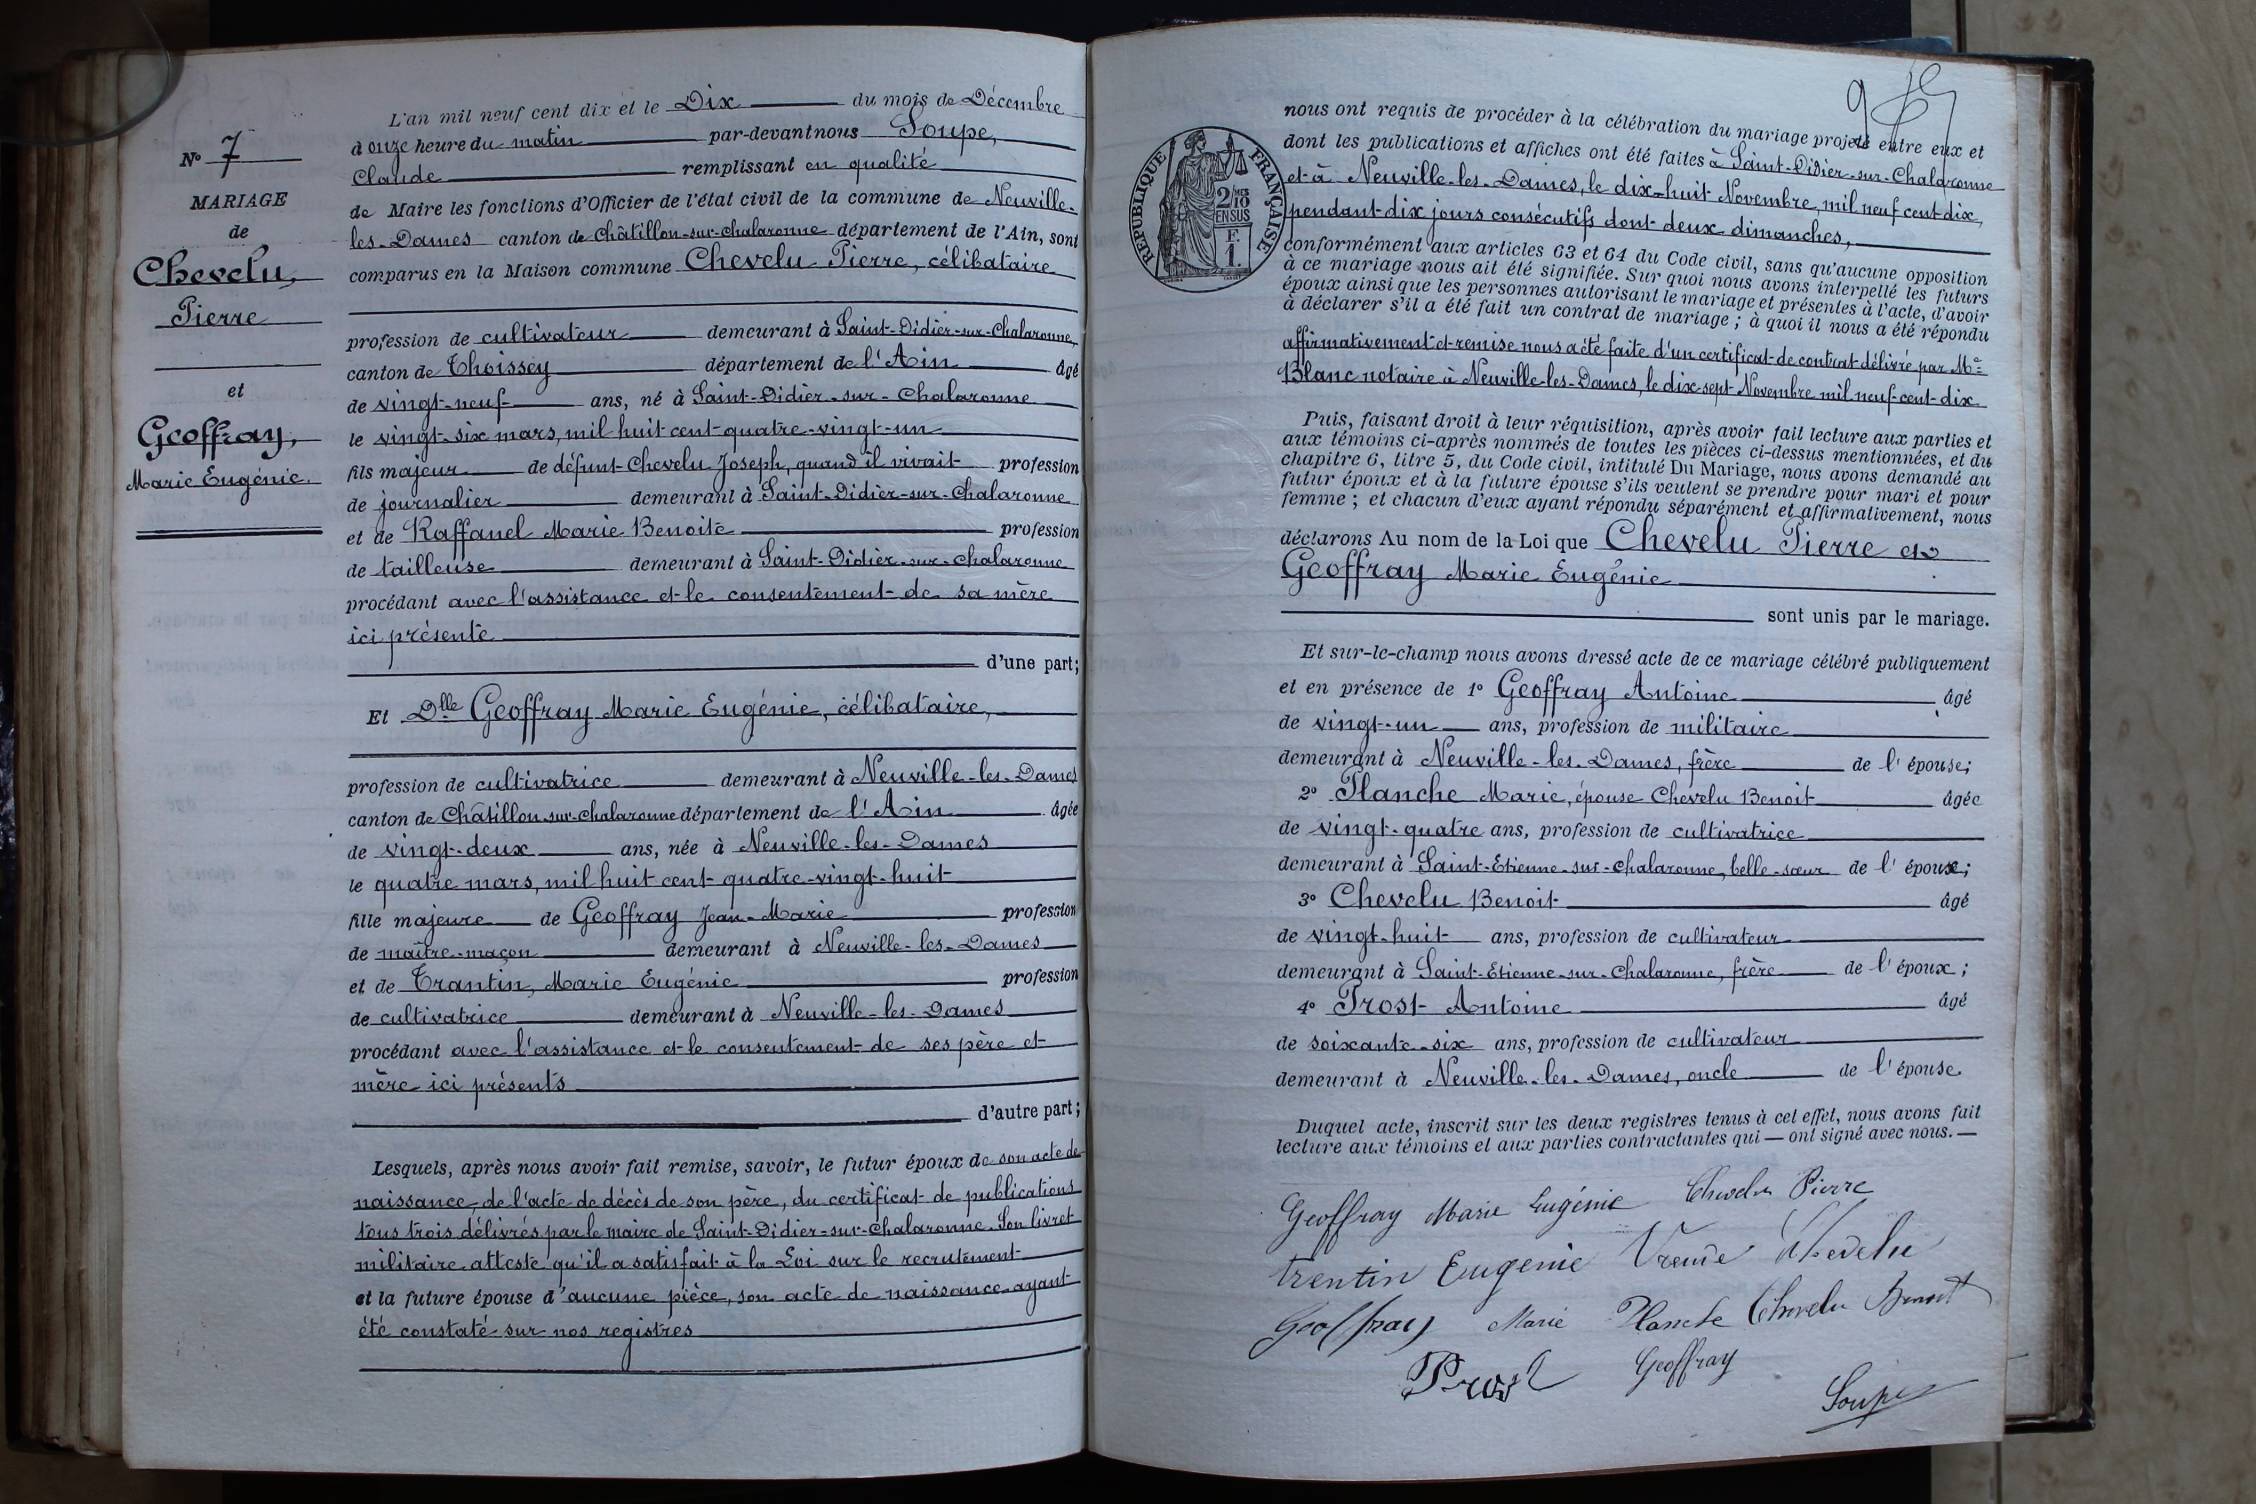 N° 7
MARIAGE
de
Chevelu,
Pierre
et
Geoffray,
Marie Eugénie.
L'an mil neuf cent dix et le Dix du mois de Décembre
à onze heure du matin par-devant nous Soupe,
Claude remplissant en qualité
de Maire les fonctions d'Officier de l'état civil de la commune de Neuville-
les-Dames canton de Châtillon-sur-Chalaronne département de l'Ain, sont
comparus en la Maison commune Chevelu Pierre, célibataire
profession de cultivateur demeurant à Saint-Didier-sur-Chalaronne,
canton de Thoissey département de l'Ain âgé
de vingt-neuf ans, né à Saint-Didier-sur-Chalaronne
le vingt-six mars, mil huit cent quatre-vingt-un
fils majeur de défunt Chevelu Joseph, quand il vivait profession
de journalier demeurant à Saint-Didier-sur-Chalaronne
et de Raffanel Marie Benoite profession
de tailleuse demeurant à Saint-Didier-sur-Chalaronne
procédant avec l'assistance et le consentement de sa mère
ici présente
d'une part;
Et Dlle Geoffray Marie Eugénie, célibataire,
profession de cultivatrice demeurant à Neuville-les-Dames
canton de Châtillon-sur-Chalaronne département de l'Ain âgée
de vingt-deux ans, née à Neuville-les-Dames
le quatre mars, mil huit cent quatre-vingt-huit
fille majeure de Geoffray Jean-Marie profession
de maître-maçon demeurant à Neuville-les-Dames
et de Trantin, Marie Eugénie profession
de cultivatrice demeurant à Neuville-les-Dames
procédant avec l'assistance et le consentement de ses père et
mère ici présents
d'autre part;
Lesquels, après nous avoir fait remise, savoir, le futur époux de son acte de
naissance, de l'acte de décès de son père, du certificat de publications
tous trois délivrés par le maire de Saint-Didier-sur-Chalaronne. Son livret
militaire atteste qu'il a satisfait à la Loi sur le recrutement
et la future épouse d'aucune pièce, son acte de naissance ayant
été constaté sur nos registres
RÉPUBLIQUE FRANÇAISE
2/10 MES
EN SUS
F.
1.
nous ont requis de procéder à la célébration du mariage projeté entre eux et
dont les publications et affiches ont été faites à Saint-Didier-sur-Chalaronne
et à Neuville-les-Dames, le dix-huit Novembre, mil neuf cent dix,
pendant dix jours consécutifs dont deux dimanches,
conformément aux articles 63 et 64 du Code civil, sans qu'aucune opposition
à ce mariage nous ait été signifiée. Sur quoi nous avons interpellé les futurs
époux ainsi que les personnes autorisant le mariage et présentes à l'acte, d'avoir
à déclarer s'il a été fait un contrat de mariage ; à quoi il nous a été répondu
affirmativement et remise nous a été faite d'un certificat de contrat délivré par Me
Blanc notaire à Neuville-les-Dames, le dix-sept Novembre mil neuf cent dix
Puis, faisant droit à leur réquisition, après avoir fait lecture aux parties et
aux témoins ci-après nommés de toutes les pièces ci-dessus mentionnées, et du
chapitre 6, titre 5, du Code civil, intitulé Du Mariage, nous avons demandé au
futur époux et à la future épouse s'ils veulent se prendre pour mari et pour
femme ; et chacun d'eux ayant répondu séparément et affirmativement, nous
déclarons Au nom de la Loi que Chevelu Pierre et
Geoffray Marie Eugénie
sont unis par le mariage.
Et sur-le-champ nous avons dressé acte de ce mariage célébré publiquement
et en présence de 1° Geoffray Antoine âgé
de vingt-un ans, profession de militaire
demeurant à Neuville-les-Dames, frère de l'épouse;
2° Planche Marie, épouse Chevelu Benoit âgée
de vingt-quatre ans, profession de cultivatrice
demeurant à Saint-Etienne-sur-Chalaronne, belle-sœur de l'époux;
3° Chevelu Benoit âgé
de vingt-huit ans, profession de cultivateur
demeurant à Saint-Etienne-sur-Chalaronne, frère de l'époux;
4° Prost Antoine âgé
de soixante-six ans, profession de cultivateur
demeurant à Neuville-les-Dames, oncle de l'épouse
Duquel acte, inscrit sur les deux registres tenus à cet effet, nous avons fait
lecture aux témoins et aux parties contractantes qui — ont signé avec nous. —
Geoffray Marie Eugénie Chevelu Pierre
Trentin Eugenie Veuve Chevelu
Geoffray Marie Planche Chevelu Benoit
Prost Geoffray
Soupe